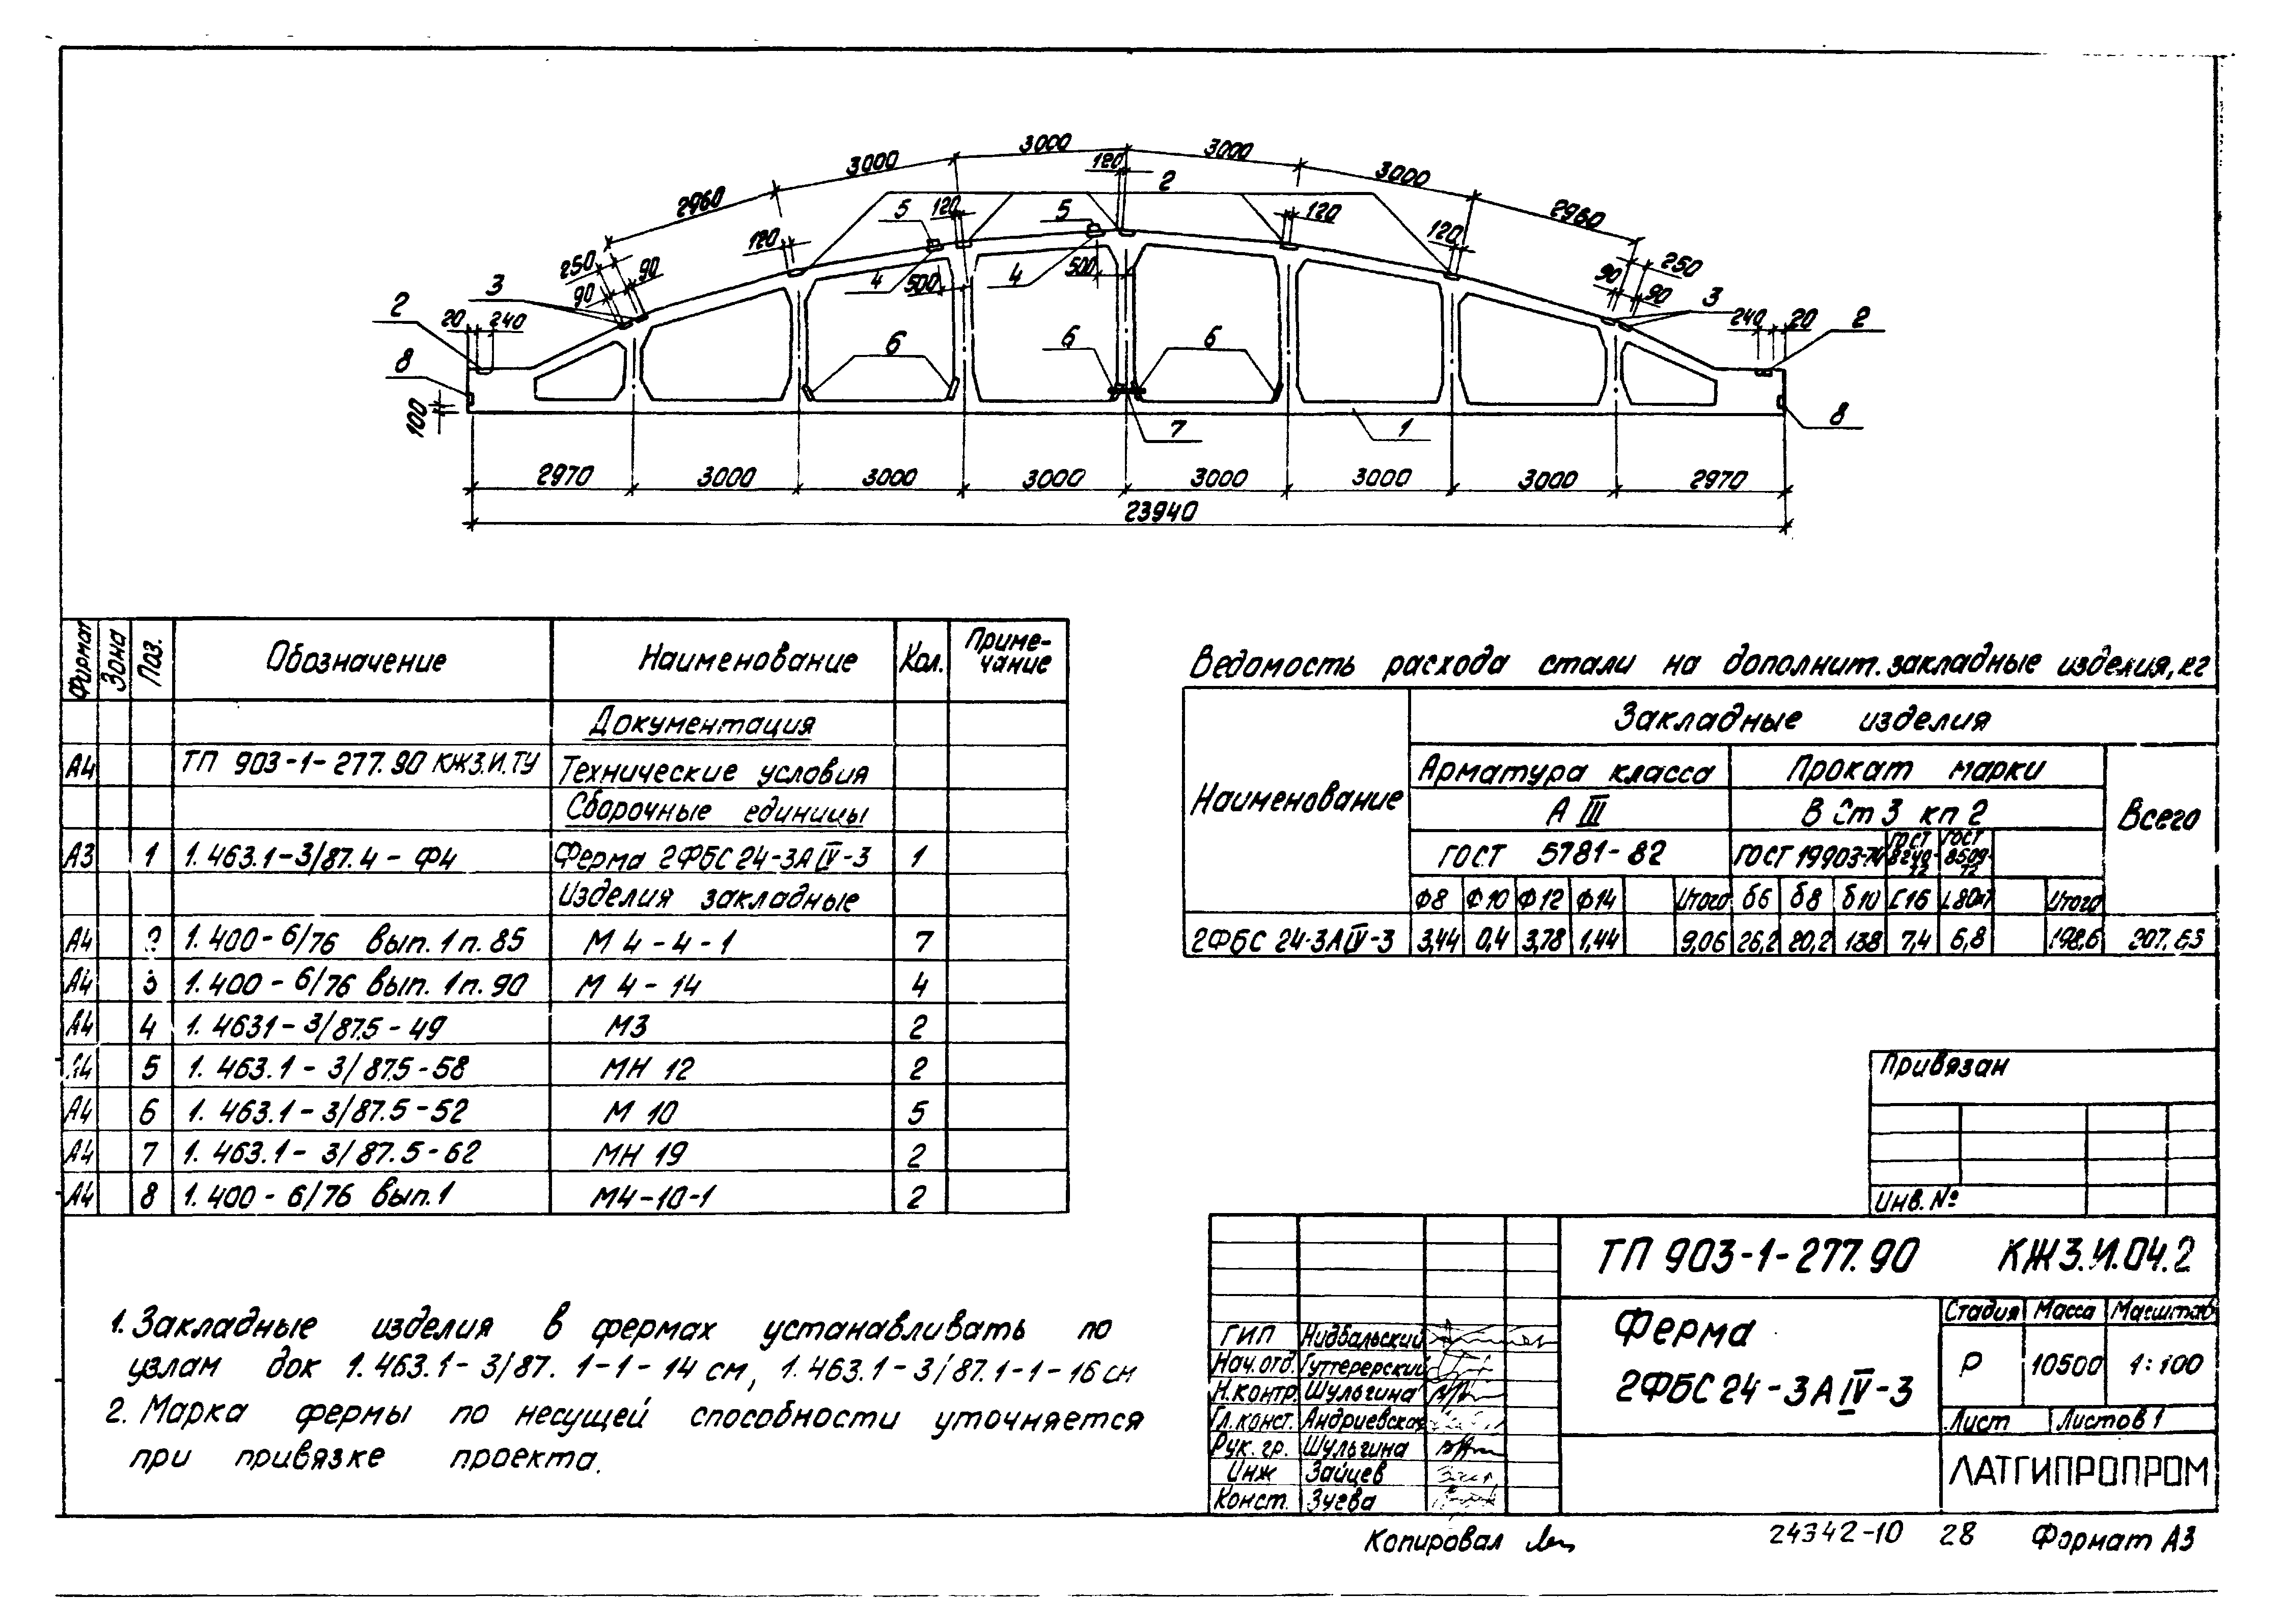 3000
3000
3000
3000
2960
2960
120
120
120
120
120
2
5
5
250
90
90
3
4
500
4
500
90
250
90
3
2
20
240
240
20
2
8
6
6
6
100
7
1
8
2970
3000
3000
3000
3000
3000
3000
2970
23940
Формат Зона Поз. Обозначение Наименование Кол. Приме-
чание
Документация
А4 ТП 903-1-277.90 КЖ3.И.ТУ Технические условия
Сборочные единицы
А3 1 1.463.1-3/87.4-Ф4 Ферма 2ФБС24-3АIV-3 1
Изделия закладные
А4 2 1.400-6/76 вып.1п.85 М4-4-1 7
А4 3 1.400-6/76 вып.1п.90 М 4-14 4
А4 4 1.4631-3/87.5-49 М3 2
А4 5 1.463.1-3/87.5-58 МН 12 2
А4 6 1.463.1-3/87.5-52 М 10 5
А4 7 1.463.1-3/87.5-62 МН 19 2
А4 8 1.400-6/76 вып.1 М4-10-1 2
Ведомость расхода стали на дополнит.закладные изделия,кг
Наименование
Закладные изделия
Арматура класса Прокат марки Всего
А III В Ст 3 кп 2
ГОСТ 5781-82 ГОСТ 19903-74 ГОСТ 8240-72 ГОСТ 8509-72
Ф8 Ф10 Ф12 Ф14 Итого δ6 δ8 δ10 [16 Итого
2ФБС 24-3АIV-3 3,44 0,4 3,78 1,44 9,06 26,2 20,2 138 7,4 6,8 198,6
Привязан
Инв.№
ТП 903-1-277.90 КЖ3.И.04.2
Ферма
2ФБС24-3АIV-3
Стадия Масса Масштаб
Р 10500 1:100
Лист Листов 1
ЛАТГИПРОПРОМ
ГИП Нидбальский
Нач.отд. Гуттерерский
Н.контр. Шульгина
Гл.конст. Андриевская
Рук.гр. Шульгина
Инж Зайцев
Конст. Зуева
1.Закладные изделия в фермах устанавливать по
узлам док 1.463.1-3/87.1-1-14см, 1.463.1-3/87.1-1-16см
2. Марка фермы по несущей способности уточняется
при привязке проекта.
Копировал
24342-10 28 Формат А3